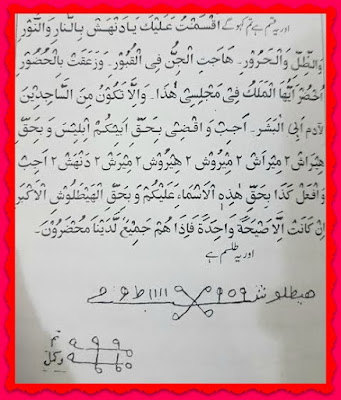 اور یہ قسم ہے تم کہو گے اَقْسَمْتُ عَلَيْكَ يَا دَنْهَشْ بِالنَّارِ وَالنُّوْرِ
وَالظِّلِّ وَالْحَرُوْرِ۔ هَاجَتِ الْجِنُّ فِى الْقُبُوْرِ۔ وَزَعَقْتُ بِالْحُضُوْرِ
اُحْضُرْ اَيُّهَا الْمَلَكُ فِىْ مَجْلِسِىْ هٰذَا۔ وَاِلَّا تَكُوْنُ مِنَ السَّاجِدِيْنَ
لِاٰدَمَ اَبِى الْبَشَرِ۔ اَجِبْ وَاقْضِىْ بِحَقِّ اَبِيْكُمْ اِبْلِيْسَ وَبِحَقِّ
هِيْرَاشْ ٢ مِيْرَاشْ ٢ مِيْرُوْشْ ٢ هِيْرُوْشْ ٢ مِيْرَشْ ٢ دَنْهَشْ ٢ اَجِبْ
وَافْعَلْ كَذَا بِحَقِّ هٰذِهِ الْاَسْمَاءِ عَلَيْكُمْ وَبِحَقِّ الْهَيْطَلُوْشِ الْاَكْبَرِ
اِنْ كَانَتْ اِلَّا صَيْحَةً وَاحِدَةً فَاِذَا هُمْ جَمِيْعٌ لَّدَيْنَا مُحْضَرُوْنَ۔
اور یہ طلسم ہے
هيطلوش